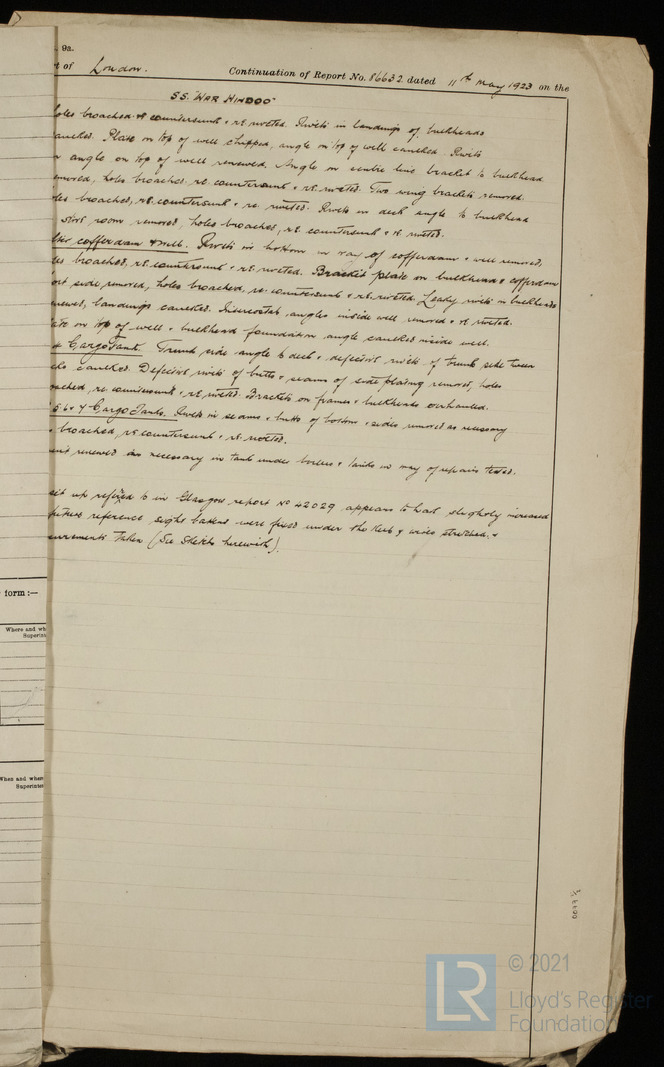 . 9a.
t of London. Continuation of Report No. 86632 dated 11th May 1923 on the
S.S. WAR HINDOO
holes broached & countersunk & re riveted. Rivets in landings of bulkheads
caulked. Plate on top of well chipped, angle on top of well caulked. Rivets
angle on top of well renewed. Angle on centre line bracket to bulkhead
removed, holes broached, re countersunk & re riveted. Two wing brackets removed.
holes broached, re countersunk & re riveted. Rivets in deck angle to bulkhead
store room removed, holes broached, re countersunk & re riveted.
cofferdam & well. Rivets in bottom in way of cofferdam & well removed,
holes broached, re countersunk & re riveted. Bracket plate on bulkhead & cofferdam
port side removed, holes broached re countersunk & re riveted, Leaky rivets in bulkheads
renewed, landings caulked. Intercostal angles inside well removed & re riveted.
plate on top of well & bulkhead foundation angle caulked inside well.
Cargo Tank. Trunk side angle to deck & defective rivets of trunk side tween
decks caulked. Defective rivets of butts & seams of side plating removed, holes
broached, re countersunk & re riveted. Brackets on frames & bulkheads overhauled.
5 6 & 7 Cargo Tanks. Rivets in seams & butts of bottom & sides removed as necessary
broached, re countersunk & re riveted.
renewed as necessary in tank under boilers & tanks in way of repairs tested.
set up referred to in Glasgow report No 42029 appears to have slightly increased
future reference sight battens were fixed under the deck & wires stretched &
measurements taken (See Sketch herewith).
form :—
Where and wh
Superin
When and where
Superinte
© 2021
LR
Lloyd's Register
Foundation